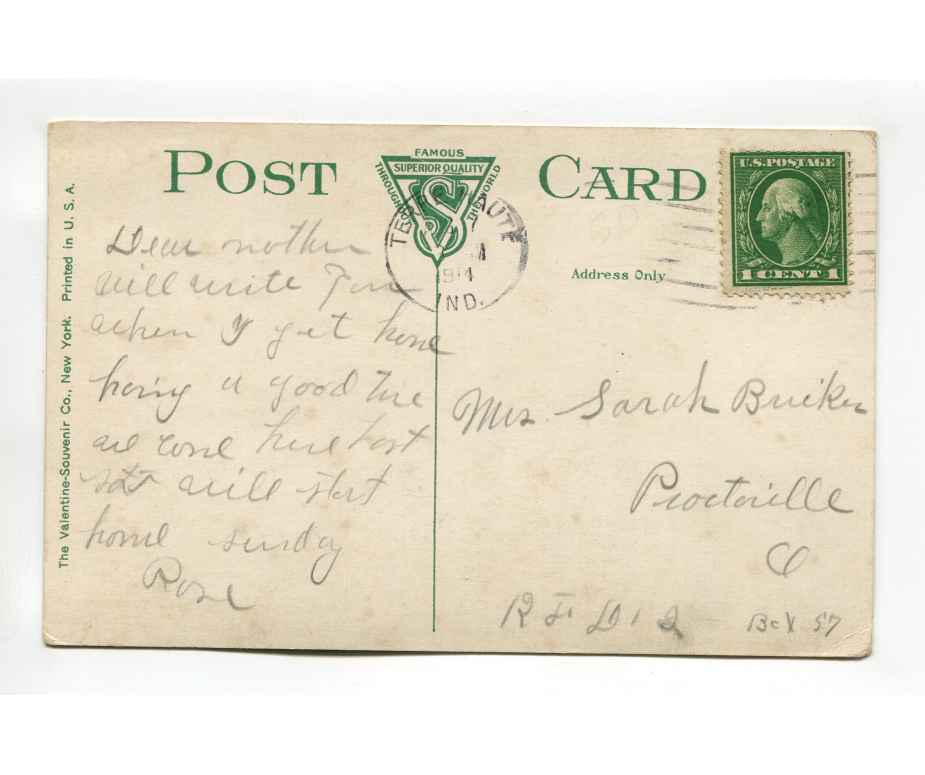 POST CARD
FAMOUS
THROUGHOUT THE WORLD
SUPERIOR QUALITY
VS
TERRE HAUTE
M
1914
IND.
U.S. POSTAGE
1 CENT 1
Address Only
The Valentine-Souvenir Co., New York. Printed in U. S. A.
Dear mother
will write
when I get home
a good
here last
sat will start
home sunday
Rose
Mrs. Sarah Bricker
Proctorville
O
R F D 2 Box 57